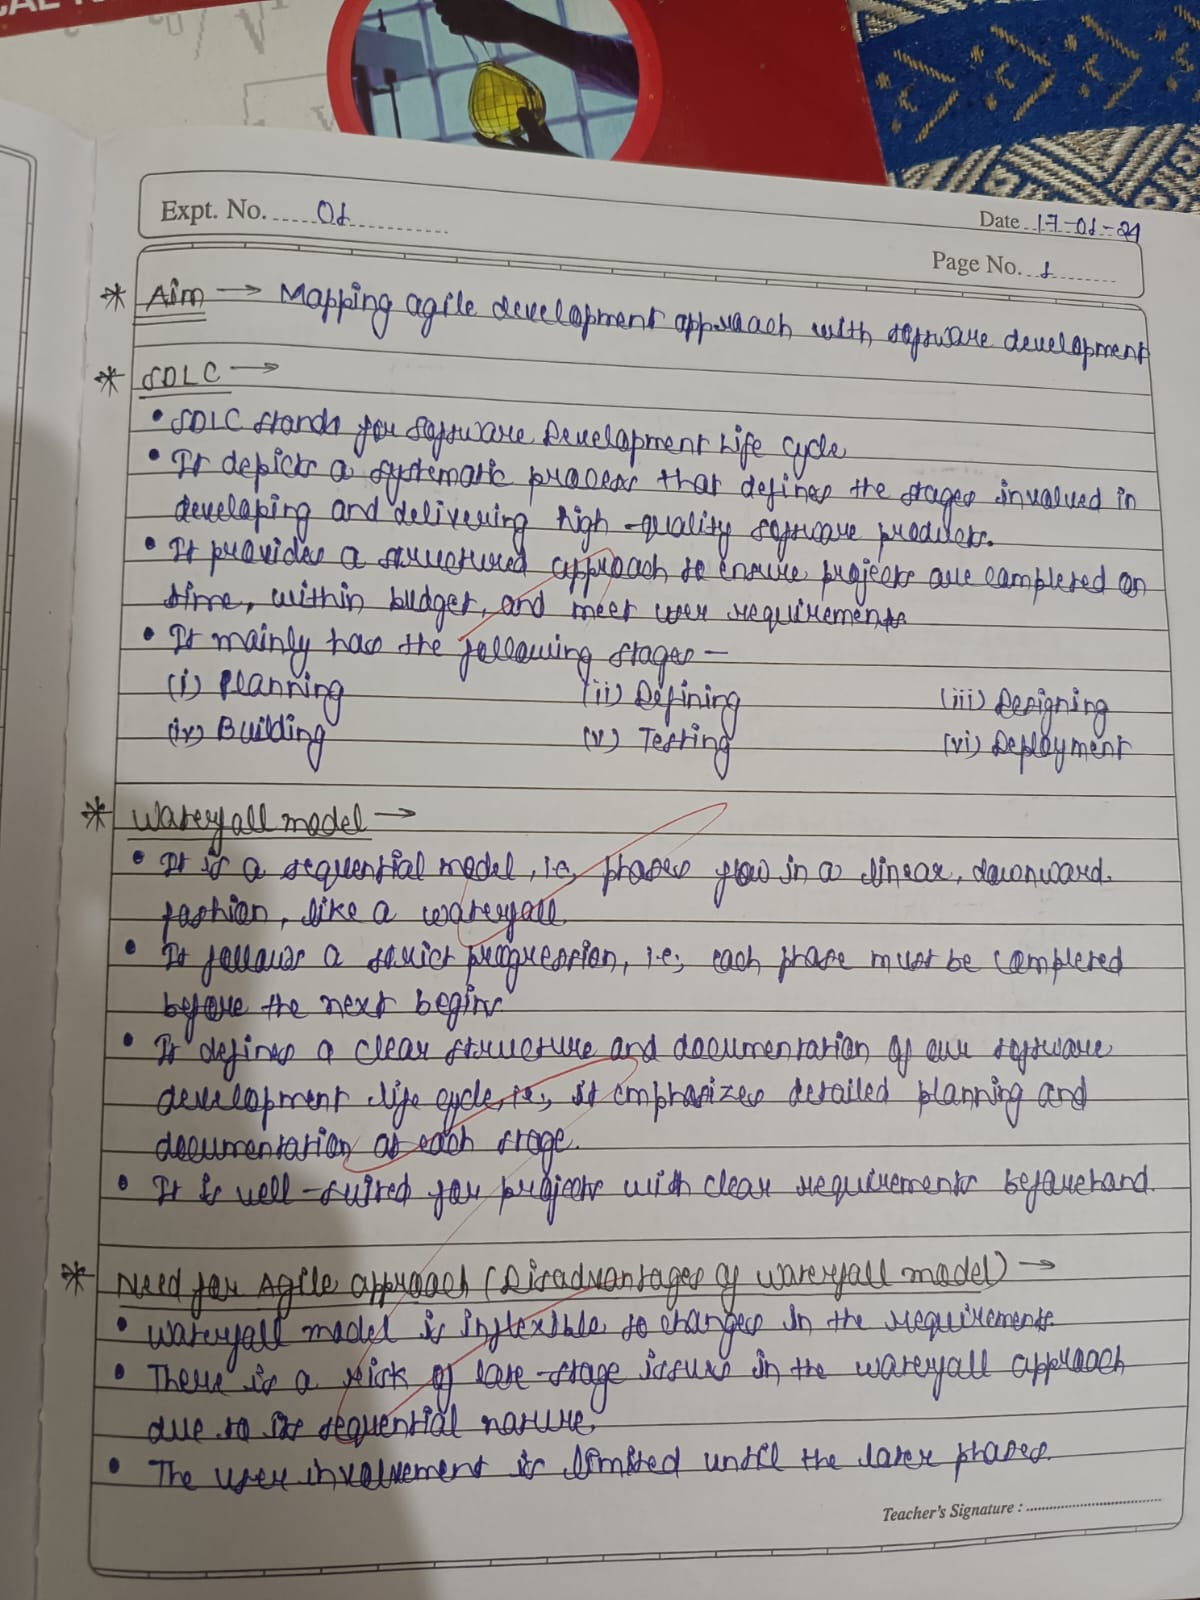 CAL
Expt. No. 01
Date 17-01-24
Page No. 1
* Aim → Mapping agile development approach with software development
* SDLC →
• SDLC stands for Software Development Life Cycle
• It depicts a systematic process that defines the stages involved in
developing and delivering high-quality software products.
• It provides a structured approach to ensure projects are completed on
time, within budget, and meet user requirements
• It mainly has the following stages —
(i) Planning (ii) Defining (iii) Designing
(iv) Building (v) Testing (vi) Deployment
* Waterfall model →
• It is a sequential model, i.e, phases flow in a linear, downward
fashion, like a waterfall.
• It follows a strict progression, i.e; each phase must be completed
before the next begins
• It defines a clear structure and documentation of our software
development life cycle, i.e; it emphasizes detailed planning and
documentation at each stage.
• It is well-suited for projects with clear requirements beforehand.
* Need for Agile approach (Disadvantages of waterfall model) →
• Waterfall model is inflexible to changes in the requirements.
• There is a risk of late-stage issues in the waterfall approach
due to its sequential nature.
• The user involvement is limited until the later phases.
Teacher's Signature :